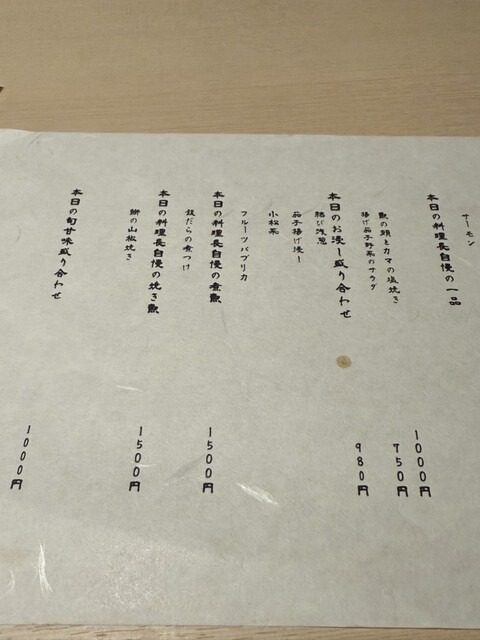 サーモン
本日の料理長自慢の一品
魚の頭とカマの塩焼き
1000円
揚げ茄子野菜のサラダ
750円
本日のお浸し盛り合わせ
980円
結び浅葱
茄子揚げ浸し
小松菜
フルーツパプリカ
本日の料理長自慢の煮魚
1500円
銀だらの煮つけ
本日の料理長自慢の焼き魚
1500円
鰤の山椒焼き
本日の旬甘味盛り合わせ
1000円